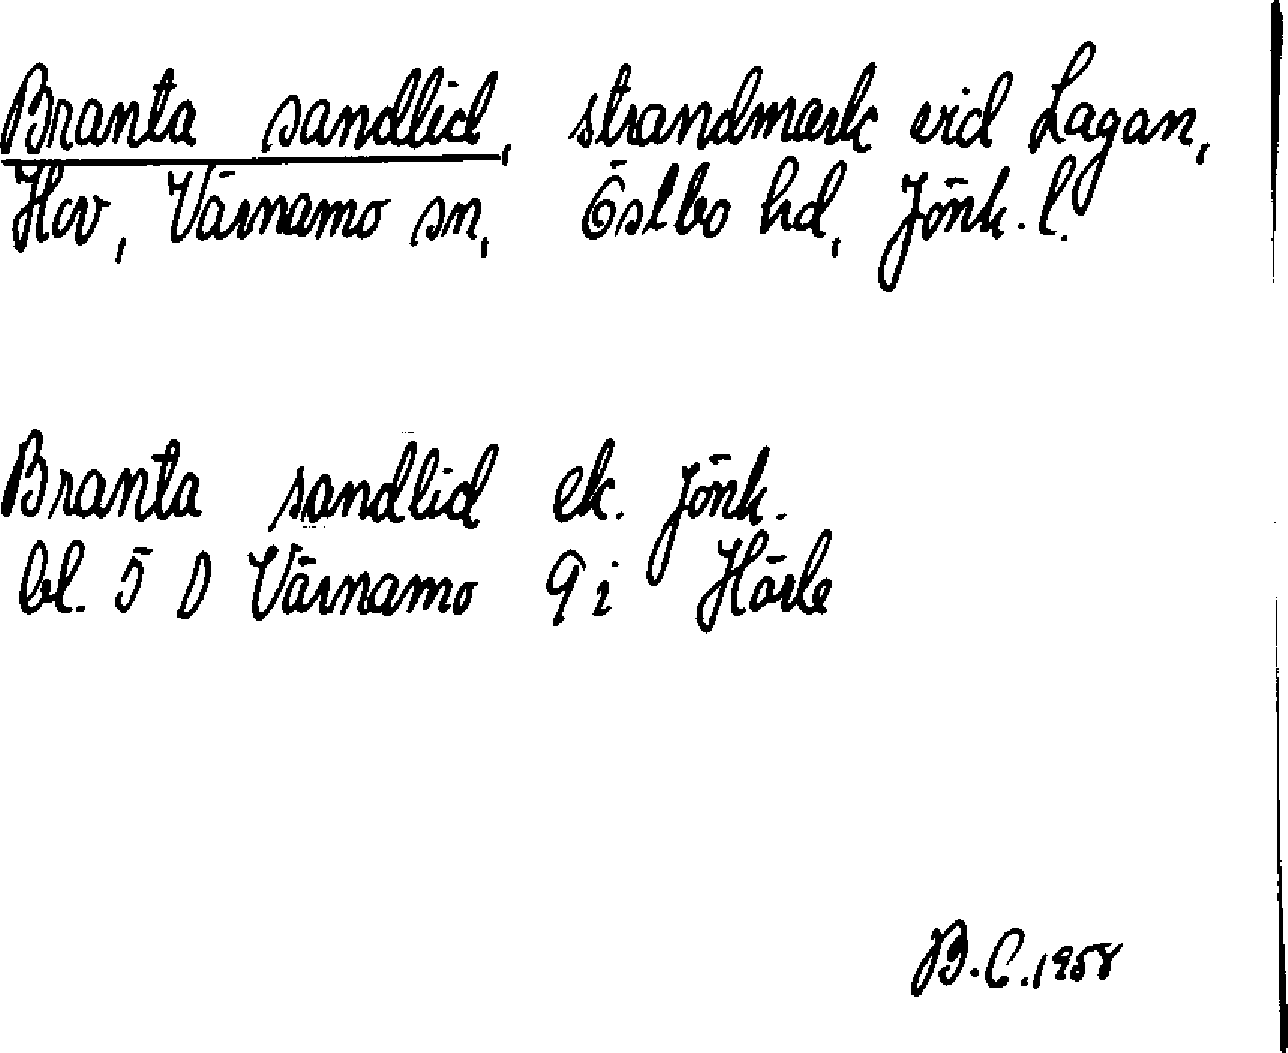 Branta sandlid, strandmark vid Lagan,
Hov, Värnamo sn, Östbo hd, Jönk. l.
Branta sandlid ek. Jönk.
bl. 5 D Värnamo 9 i Hörle
B.C. 1958